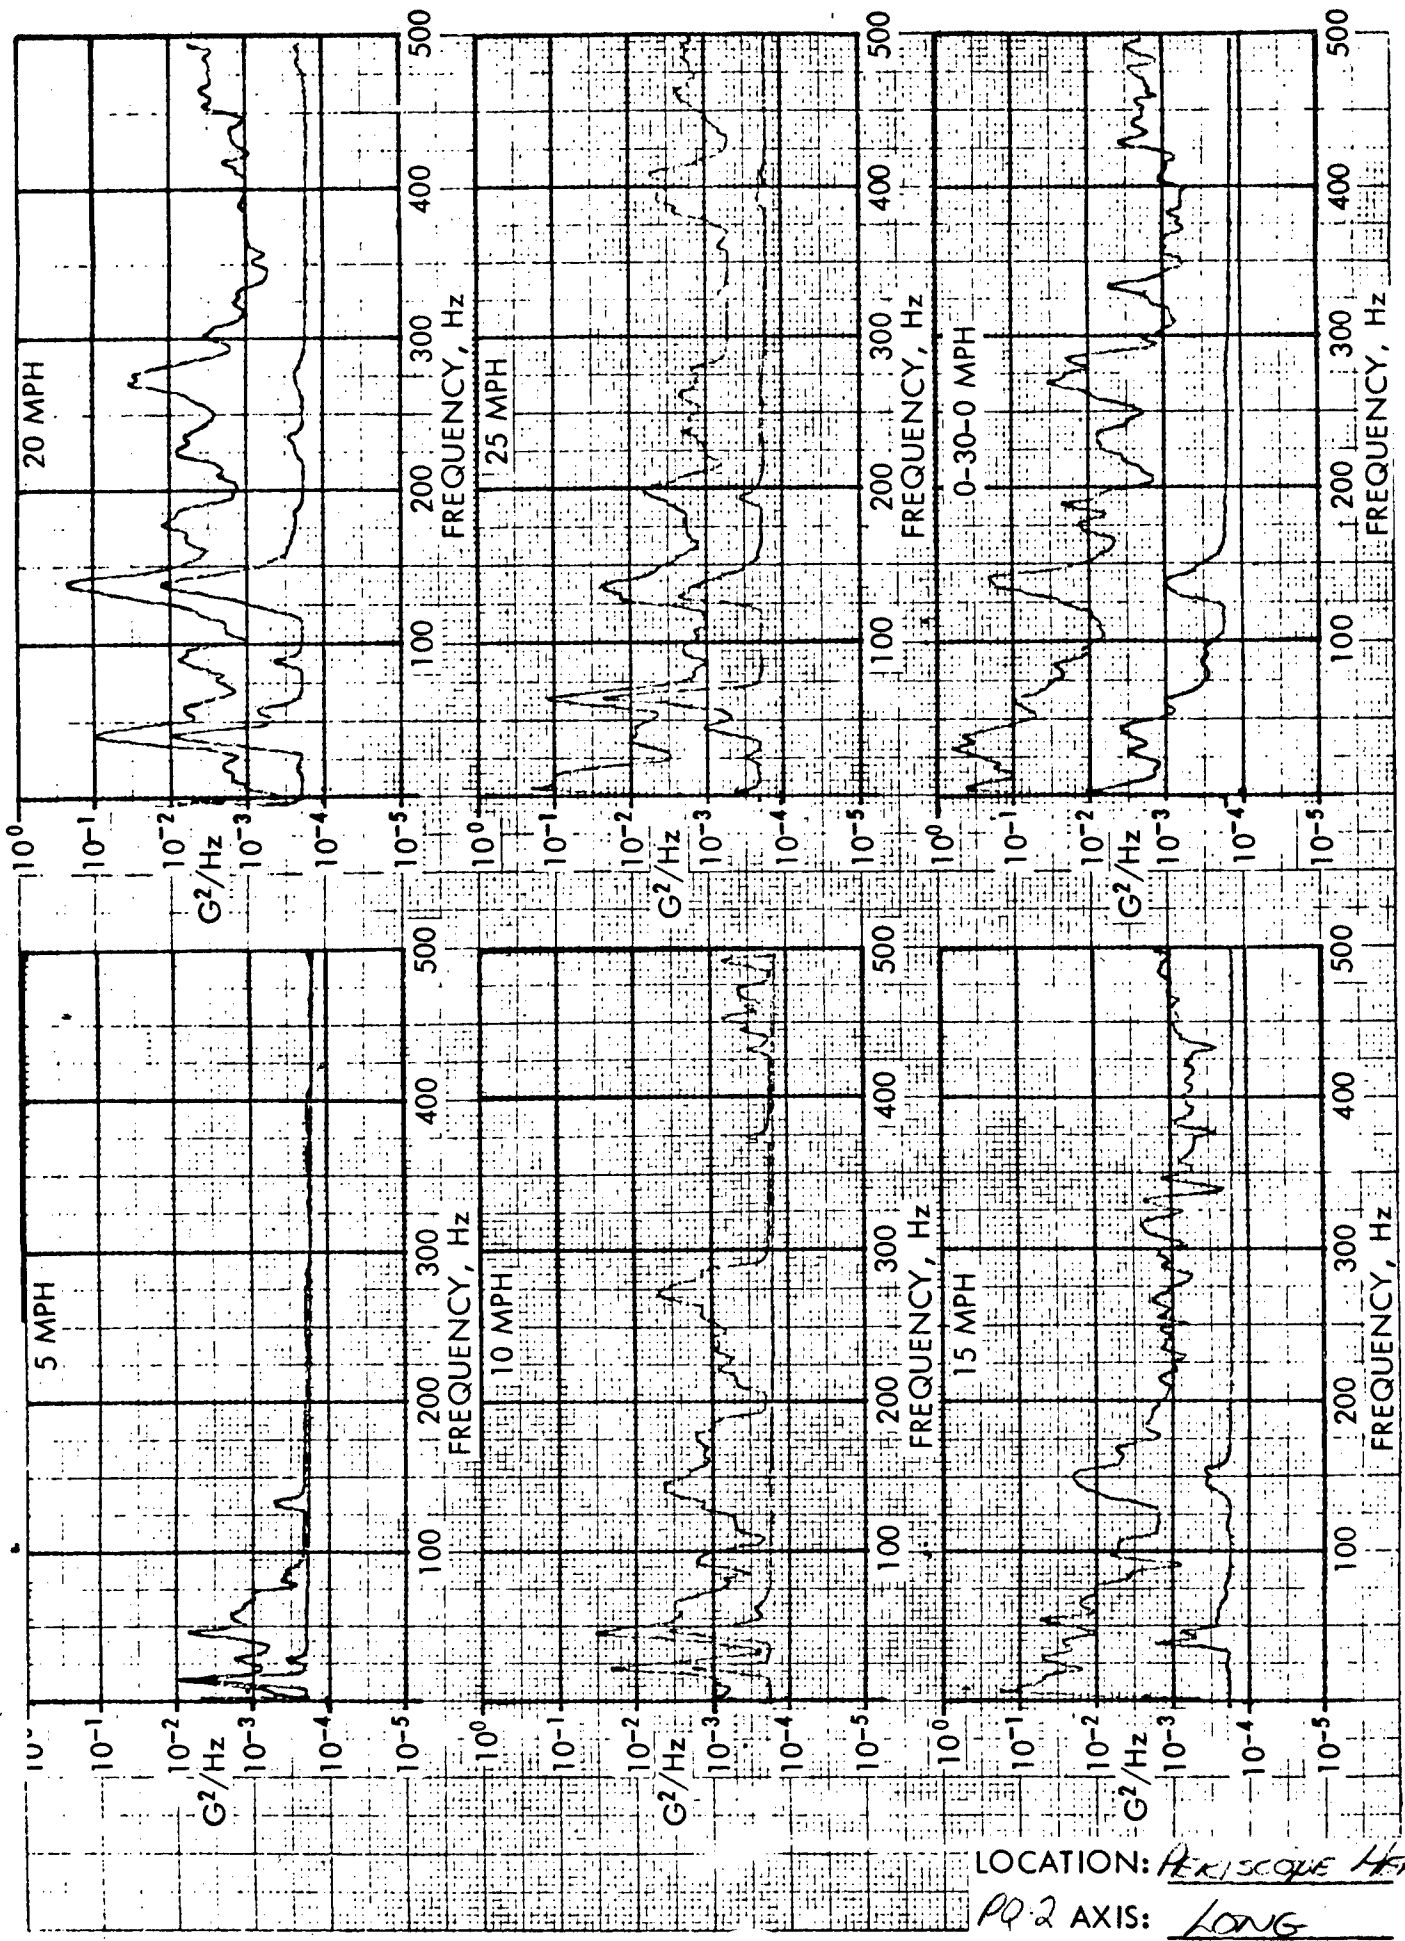 5 MPH
10⁻¹
10⁻²
10⁻³
10⁻⁴
10⁻⁵
G²/Hz
100
200
300
400
500
FREQUENCY, Hz
10 MPH
10⁰
10⁻¹
10⁻²
10⁻³
10⁻⁴
10⁻⁵
G²/Hz
100
200
300
400
500
FREQUENCY, Hz
15 MPH
10⁰
10⁻¹
10⁻²
10⁻³
10⁻⁴
10⁻⁵
G²/Hz
100
200
300
400
500
FREQUENCY, Hz
20 MPH
10⁰
10⁻¹
10⁻²
10⁻³
10⁻⁴
10⁻⁵
G²/Hz
100
200
300
400
500
FREQUENCY, Hz
25 MPH
10⁰
10⁻¹
10⁻²
10⁻³
10⁻⁴
10⁻⁵
G²/Hz
100
200
300
400
500
FREQUENCY, Hz
0-30-0 MPH
10⁰
10⁻¹
10⁻²
10⁻³
10⁻⁴
10⁻⁵
G²/Hz
100
200
300
400
500
FREQUENCY, Hz
LOCATION: PERISCOPE
PQ-2 AXIS: LONG